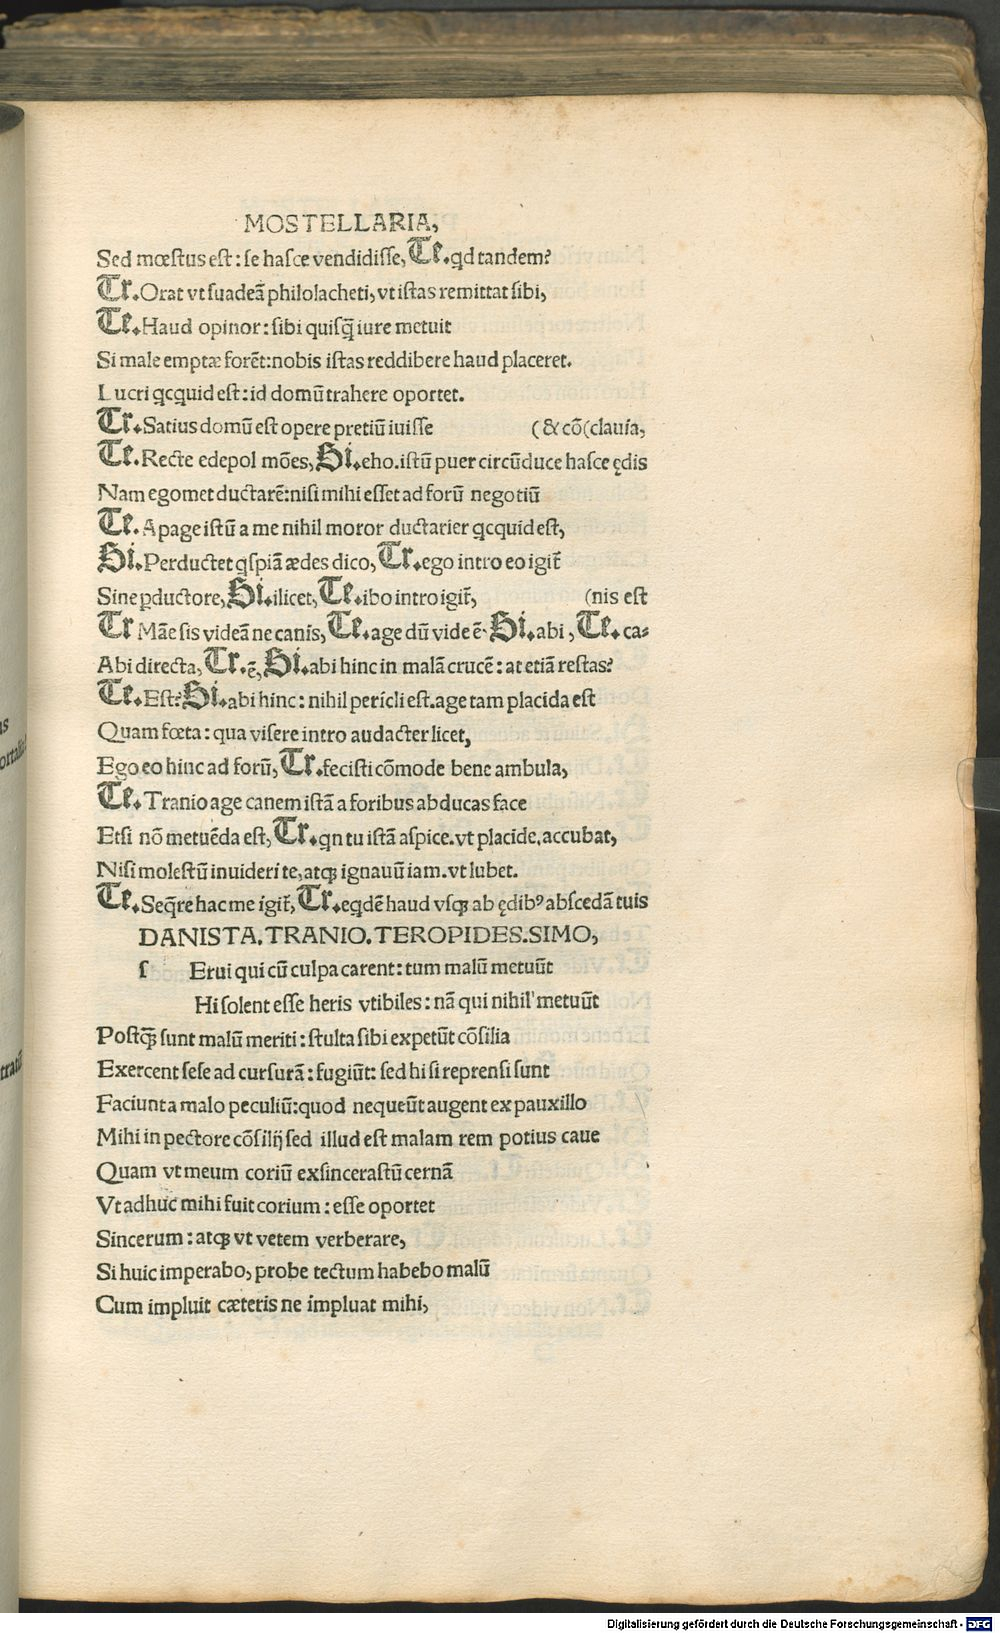 MOSTELLARIA,
Sed mœstus est: se hasce vendidisse, Te. qd tandem?
Tr. Orat vt suadeā philolacheti, vt istas remittat sibi,
Te. Haud opinor: sibi quisq̃ iure metuit
Si male emptæ forēt: nobis istas reddibere haud placeret.
Lucri qcquid est: id domū trahere oportet.
Tr. Satius domū est opere pretiū iuisse (& cō(clauia,
Te. Recte edepol mōes, Si. eho. istū puer circūduce hasce ędis
Nam egomet ductarē: nisi mihi esset ad forū negotiū
Te. Apage istū a me nihil moror ductarier qcquid est,
Si. Perductet qspiā ædes dico, Tr. ego intro eo igit̃
Sine ꝑductore, Si. ilicet, Te. ibo intro igit̃, (nis est
Tr Māe sis videā ne canis, Te. age dū vide ē. Si. abi, Te. ca-
Abi directa, Tr. ē, Si. abi hinc in malā crucē: at etiā restas?
Te. Est? Si. abi hinc: nihil pericli est. age tam placida est
Quam fœta: qua visere intro audacter licet,
Ego eo hinc ad forū, Tr. fecisti cōmode bene ambula,
Te. Tranio age canem istā a foribus abducas face
Etsi nō metuēda est, Tr. qn tu istā aspice. vt placide, accubat,
Nisi molestū inuideri te, atqꝫ ignauū iam. vt lubet.
Te. Seq̃re hac me igit̃, Tr. eqdē haud vsqꝫ ab ędibꝰ abscedā tuis
DANISTA. TRANIO. TEROPIDES. SIMO,
ſ Erui qui cū culpa carent: tum malū metuūt
Hi solent esse heris vtibiles: nā qui nihil metuūt
Postq̃ sunt malū meriti: stulta sibi expetūt cōsilia
Exercent sese ad cursurā: fugiūt: sed hi si reprensi sunt
Faciunt a malo peculiū: quod nequeūt augent ex pauxillo
Mihi in pectore cōsilij sed illud est malam rem potius caue
Quam vt meum coriū exsincerastū cernā
Vt adhuc mihi fuit corium: esse oportet
Sincerum: atqꝫ vt vetem verberare,
Si huic imperabo, probe tectum habebo malū
Cum impluit cæteris ne impluat mihi,
Digitalisierung gefördert durch die Deutsche Forschungsgemeinschaft - DFG